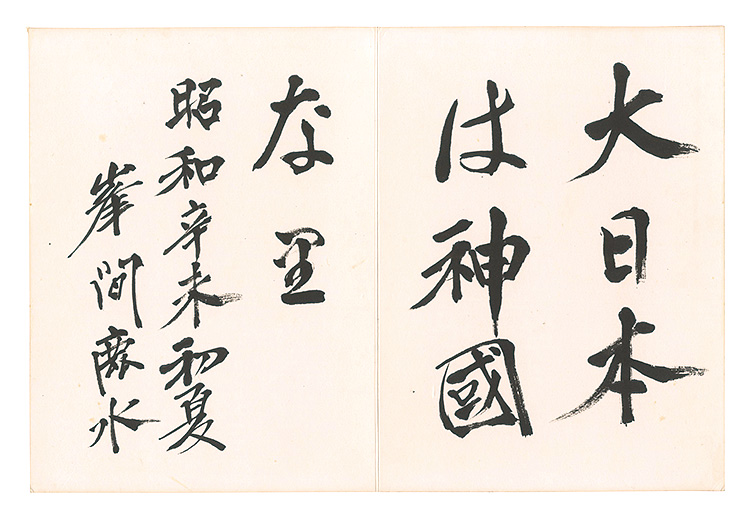 大日本
は神國
なり里
昭和辛未初夏
峯間鹿水